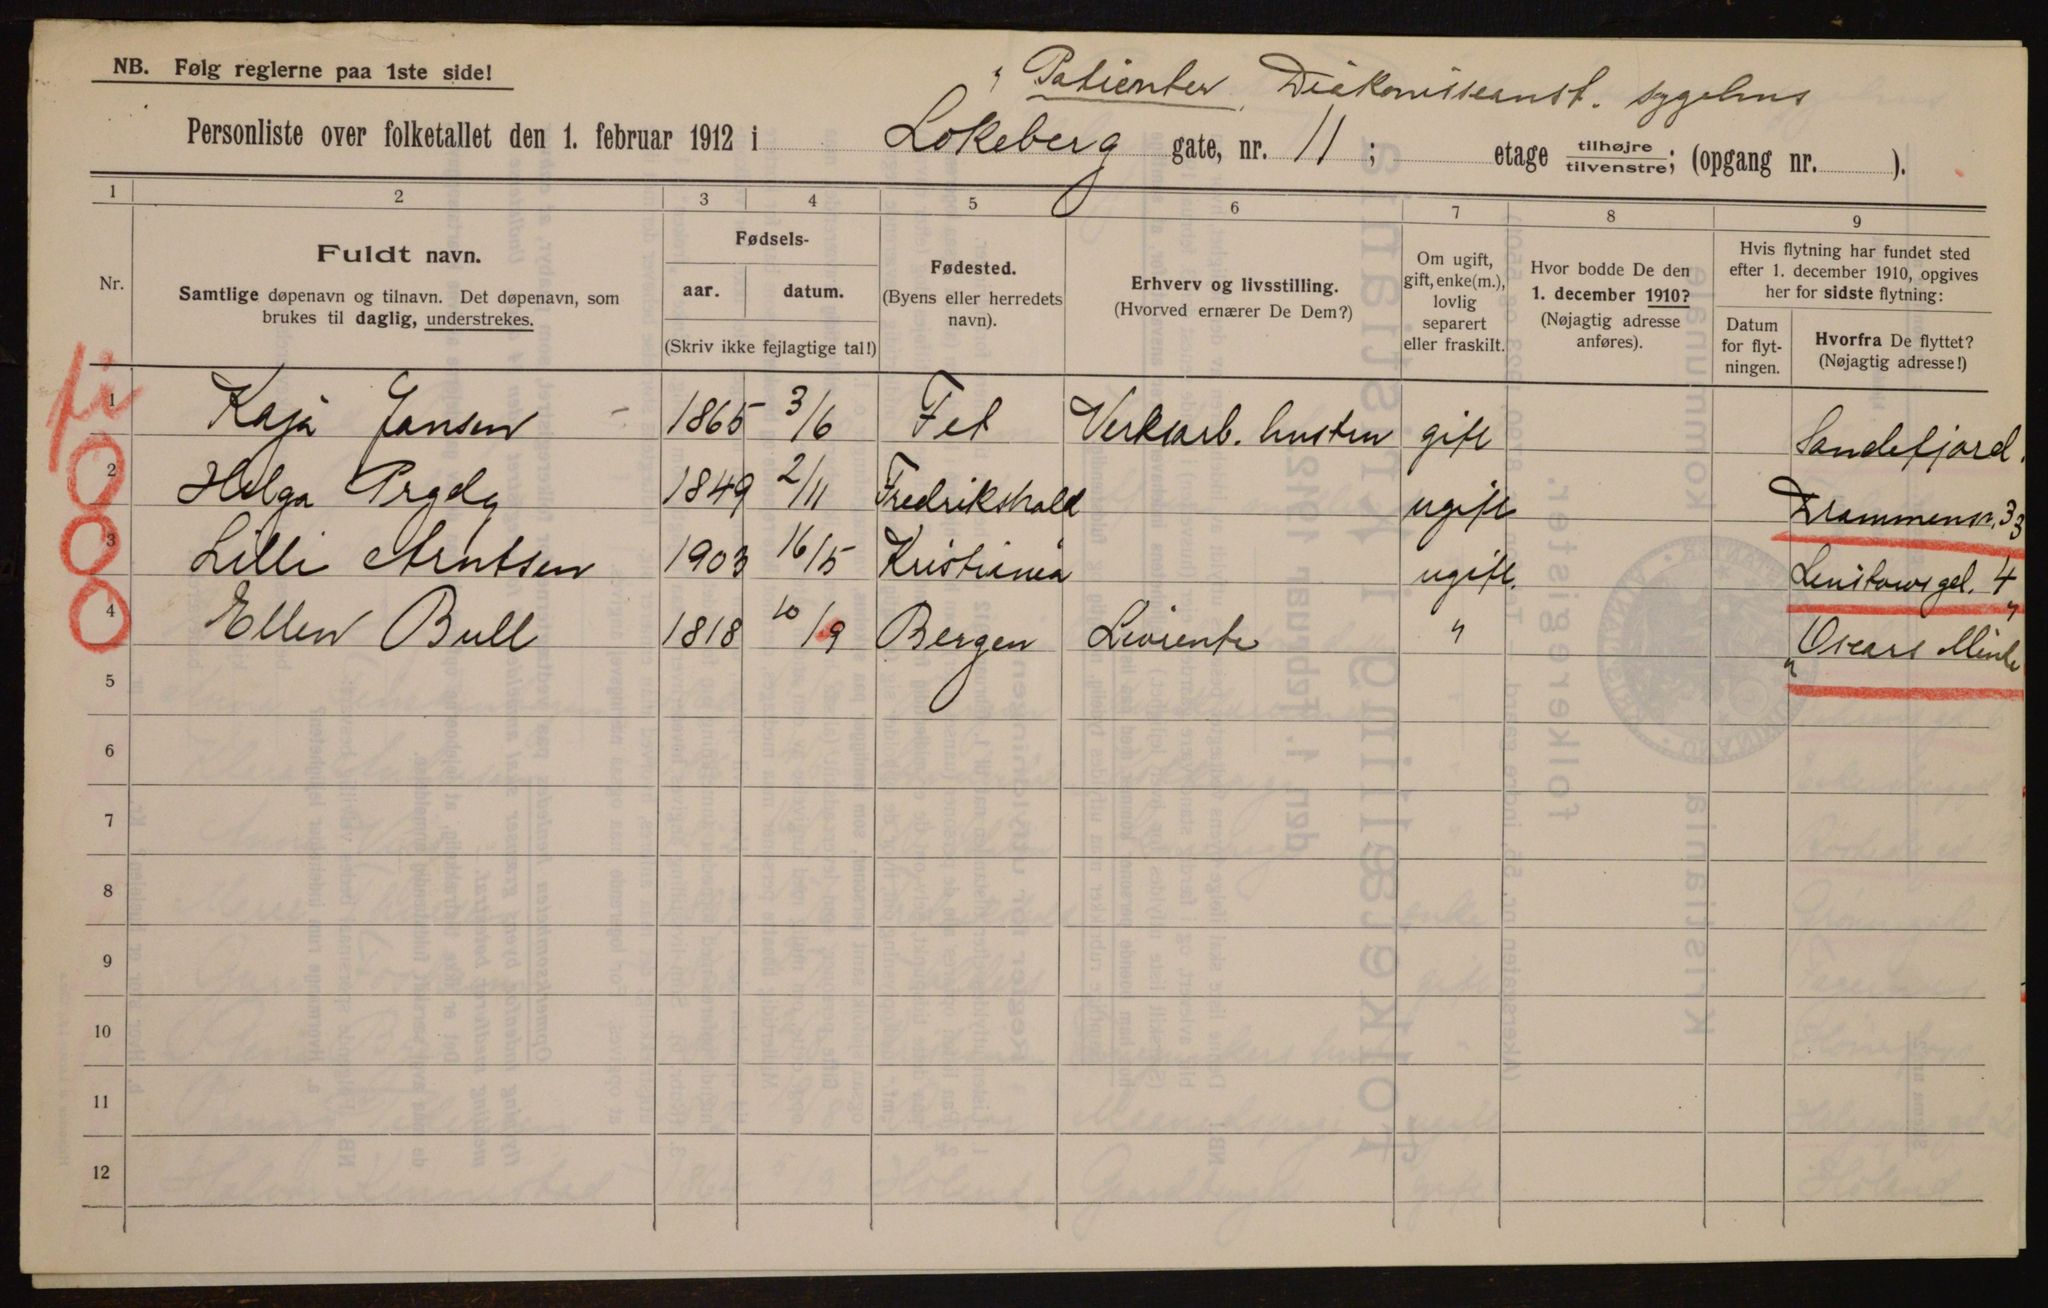 NB. Følg reglerne paa 1ste side!
Patienter, Diakonisseanst. sygehus
Personliste over folketallet den 1. februar 1912 i Lokeberg gate, nr. 11; etage tilhøjre/tilvenstre; (opgang nr. ).
1 2 3 4 5 6 7 8 9
Nr.
Fuldt navn.
Samtlige døpenavn og tilnavn. Det døpenavn, som
brukes til daglig, understrekes.
Fødsels-
aar. datum.
(Skriv ikke fejlagtige tal!)
Fødested.
(Byens eller herredets
navn).
Erhverv og livsstilling.
(Hvorved ernærer De Dem?)
Om ugift,
gift, enke(m.),
lovlig
separert
eller fraskilt.
Hvor bodde De den
1. december 1910?
(Nøjagtig adresse
anføres).
Hvis flytning har fundet sted
efter 1. december 1910, opgives
her for sidste flytning:
Datum
for flyt-
ningen.
Hvorfra De flyttet?
(Nøjagtig adresse!)
1 Kaja Jansen 1865 3/6 Fet Verksarb. hustru gift Sandefjord.
2 Helga Prydz 1849 2/11 Fredrikshald ugift Drammensv. 33
3 Lilli Arntsen 1903 16/5 Kristiania ugift. Linstowsgt. 4
4 Ellen Bull 1818 10/9 Bergen " " Oscars Minde "
5
6
7
8
9
10
11
12